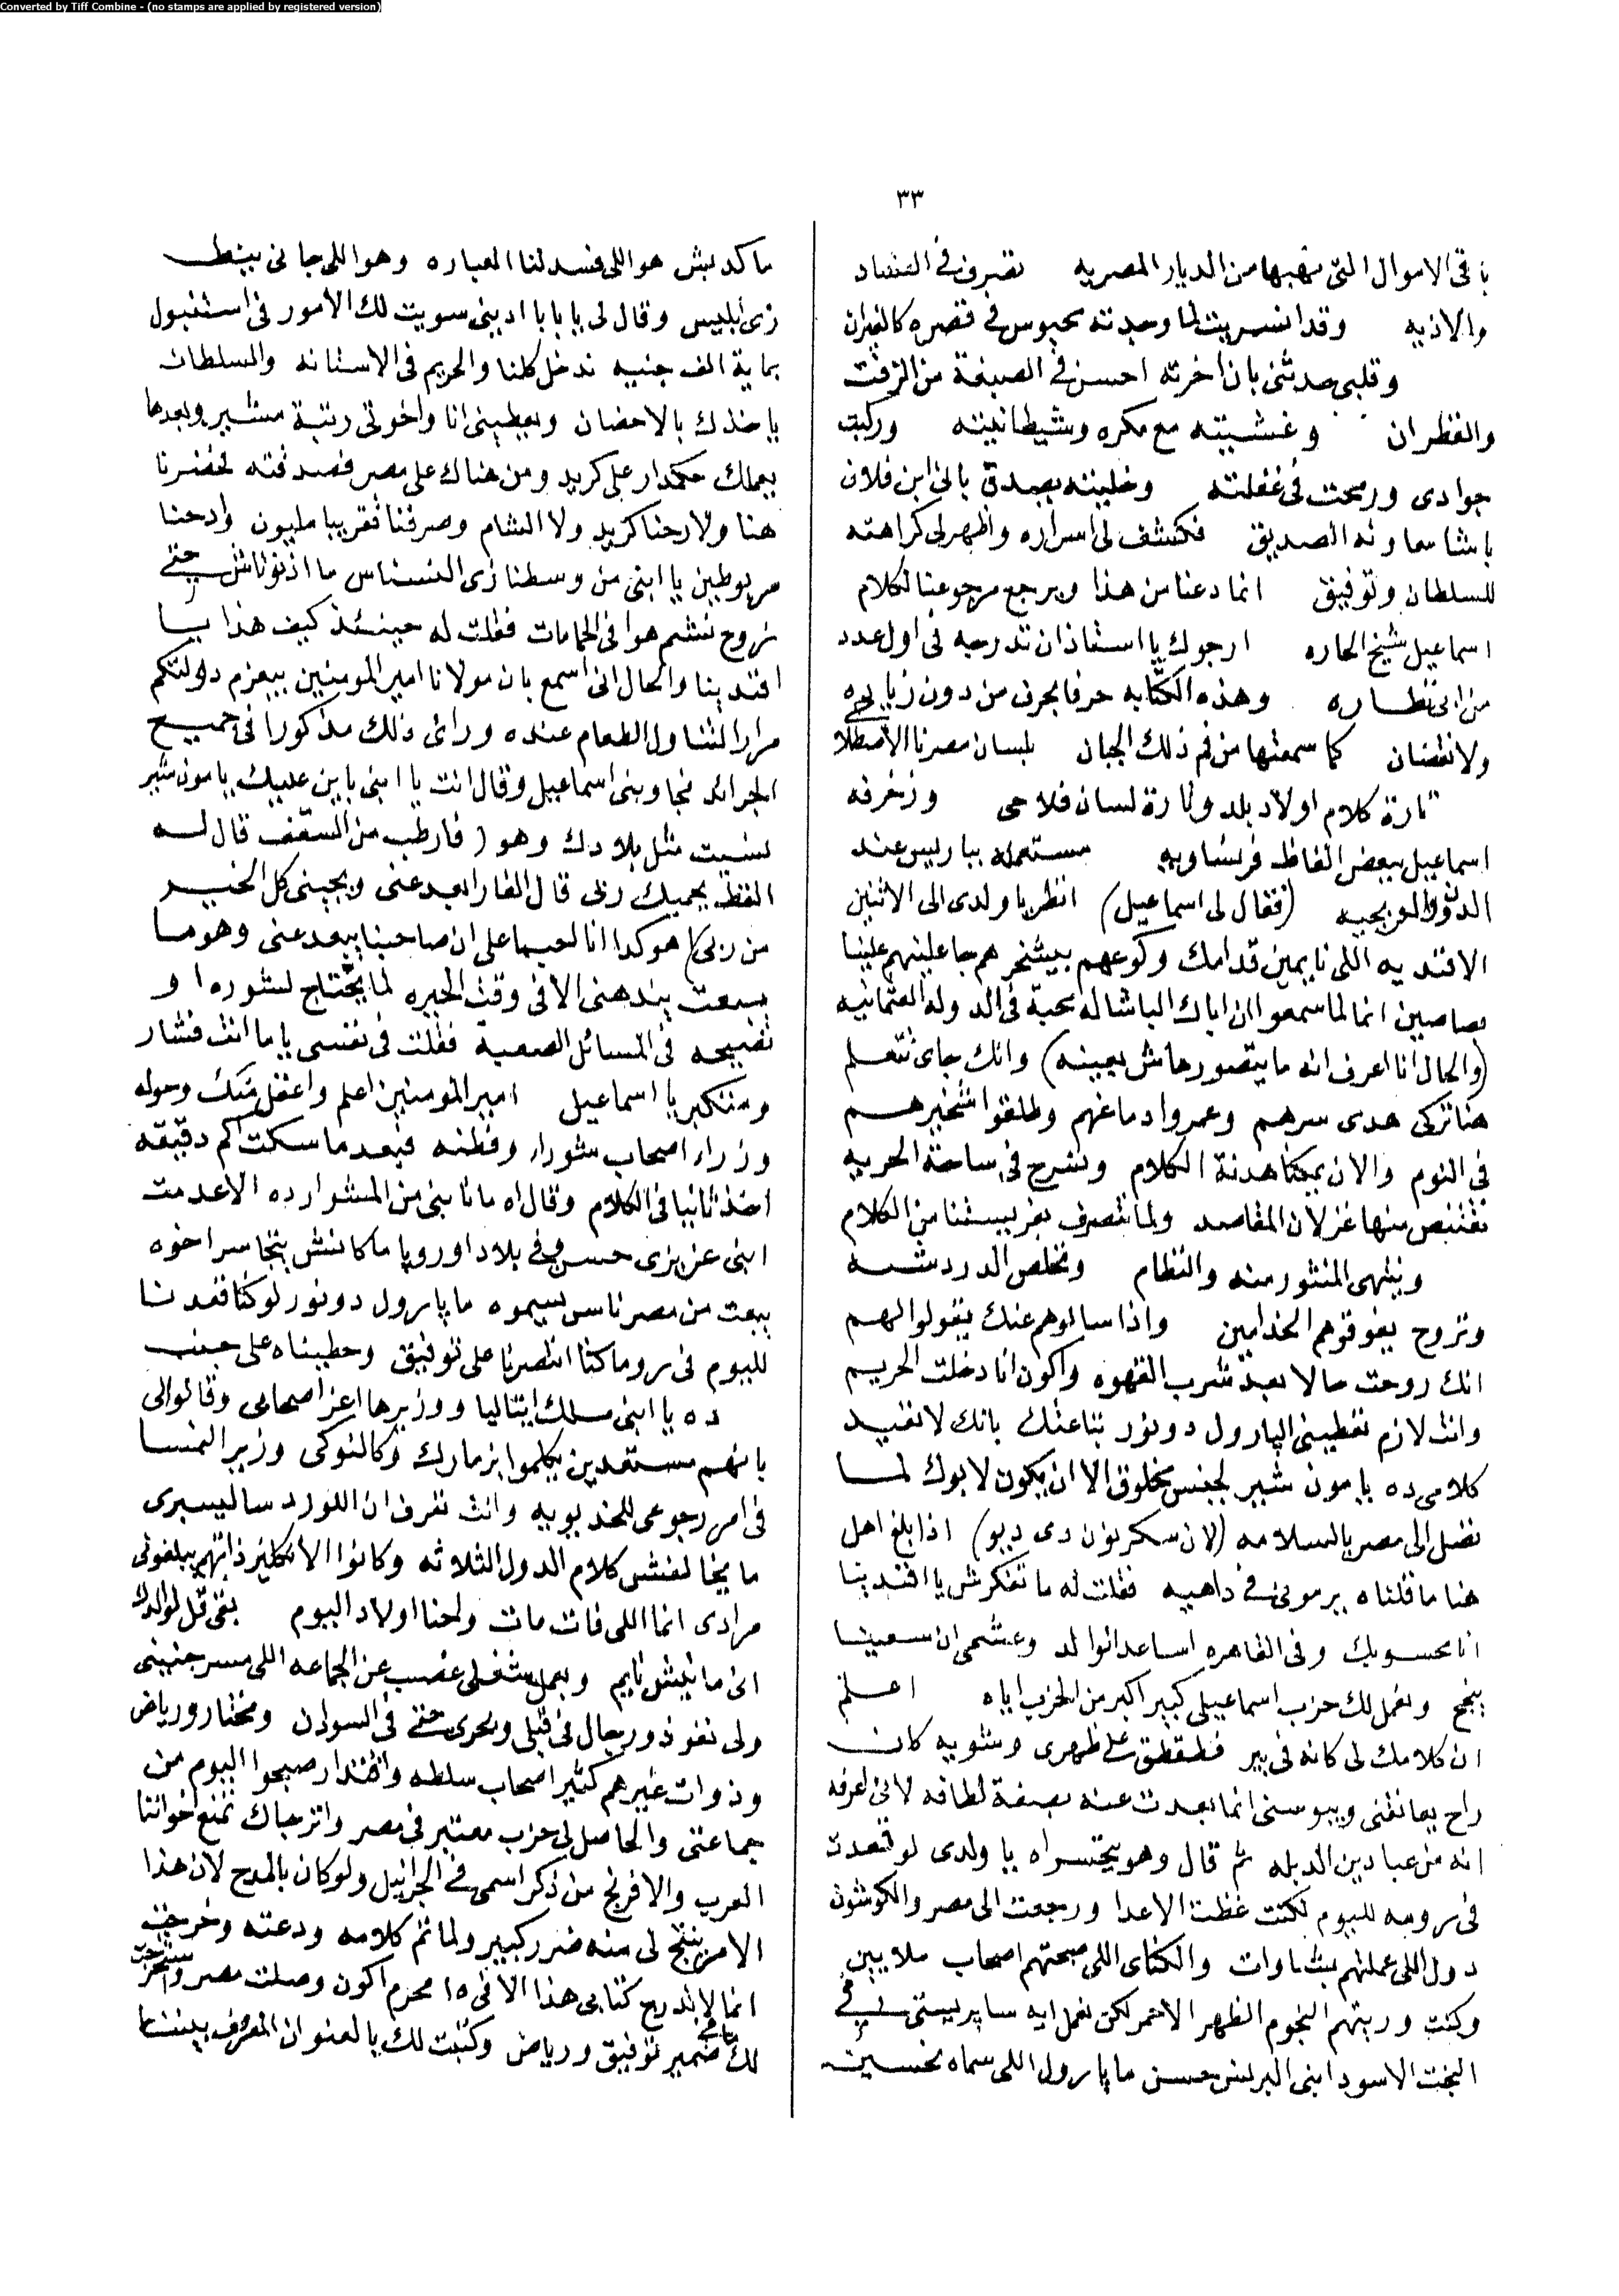 Converted by Tiff Combine - (no stamps are applied by registered version)
٣٣
باقى الاموال التى نهبها من الديار المصريه تصرف فى الفساد
والاذيه وقد انسريت لما وجدته محبوس فى قصره كالفيران
وقلبى حدثنى بان اخرته احسن فى الصيغة من الزفت
والقطران وغشيته مع مكره وشيطانيته وركبت
جوادى ورمحت فى غفلته وخليته يصدق بانى ابن فلان
باشا سماونه الصديق فكشف لى اسراره واظهر لى كراهته
للسلطان وتوفيق انما دعنا من هذا ويرجع مرجوعنا لكلام
اسماعيل شيخ الحاره ارجوك يا استاذ ان تدرجه فى اول عدد
من ابى نظاره وهذه الكتابه حرفا بحرف من دون زياده
ولا نقصان كما سمعتها من فم ذلك الجبان بلسان مصرنا الاصطلاحى
تارة كلام اولاد بلد وتارة لسان فلاحى وزخرفه
اسماعيل ببعض الفاظ فرنساويه مستعمله بباريس عند
(فقال لى اسماعيل) انظر يا ولدى الى الاثنين
الافنديه اللى نايمين قدامك وكوعهم بيشخر هم جاعلينهم علينا
بصاصين انما لما سمعوا ان اباك الباشا له محبة فى الدوله العثمانيه
(والحال انا اعرف انه ما يتصورهاش بعينه) وانك جاى تتعلم
هنا تركى هدى سرهم وعمروا دماغهم وطلقوا شخيرهم
فى النوم والان يمكنا هدنة الكلام ونسرح فى ساحة الحريه
نقتنص منها غزلان المقاصد ولما نتصرف بغريستنا من الكلام
وينتهى المنثور منه والنظام ونخلص الدردشه
وتروح يفوقوهم الخدامين واذا سالوهم عنك يقولوا لهم
انك روحت حالا بعد شرب القهوه واكون انا دخلت الحريم
وانت لازم تعطينى الپارول دونور بتاعتك بانك لا تفيد
كلامى ده يا مون شير لجنس مخلوق الا ان يكون لابوك لما
تصل الى مصر بالسلامه (لان سكريون دى ديو) اذا بلغ اهل
هنا ما قلناه يرمونى فى داهيه فقلت له ما تفكرش يا افندينا
انا محسوبك وفى القاهره اساعد الوالد وعشمى ان سعينا
ينجح ونعمل لك حزب اسماعيلى كبير اكبر من الحزب اياه اعلم
ان كلامك لى كانه فى بير فطقطق على ظهرى وشويه كان
راح يعانقنى ويبوسنى انما بعدت عنه بصفة لطافه لانى اعرفه
انه من عبادين الدبله ثم قال وهو يتحسراه يا ولدى لو قعدت
فى رومه لليوم لكنت غظت الاعدا ورجعت الى مصر والكوشون
دول اللى عملتهم بشاوات والكناى اللى صبحتهم اصحاب ملايين
وكنت وريتهم النجوم الظهر الاحمر لكن نعمل ايه ساپريستى فى
البخت الاسود ابنى البرنس حسن ما پارول اللى سماه نحسين
ما كدبش هو اللى فسد لنا العباره وهو اللى جانى بينط
زى ابليس وقال لى يا بابا ادينى سويت لك الامور فى استنبول
بماية الف جنيه ندخل كلنا والحريم فى الاستانه والسلطان
ياخذك بالاحضان ويعطينى انا واخوتى رتبة مشير وبعدها
يعملك حكمدار على كريد ومن هناك على مصر فصدقته لحضرنا
هنا ولا رحنا كريد ولا الشام وصرفنا تقريبا مليون وادحنا
مربوطين يا ابنى من وسطنا زى النسناس ما اذنوناش حتى
نروح نشم هوا فى الحمامات فقلت له حينئذ كيف هذا يا
افندينا والحال انى اسمع بان مولانا امير المومنين بيعزم دولتكم
مرارا لتناول الطعام عنده ورائى ذلك مذكورا فى جميع
الجرائد فجاوبنى اسماعيل وقال انت يا ابنى باين عليك يا مون شير
نسيت مثل بلادك وهو (فار طب من السقف قال له
القط يحميك ربى قال الفار ابعد عنى ويجينى كل الخير
من ربى) هو كدا انا لحسا على ان صاحبنا يبعد عنى وهو ما
بسعت يندهنى الا فى وقت الحيره لما يحتاج لشوره او
نصيحه فى المسائل الصعبة فقلت فى نفسى ياما انت فشار
ومتكبر يا اسماعيل امير المومنين اعلم واعقل منك وحوله
وزراء اصحاب شورا، وفطنه فبعدما سكت كم دقيقه
اخذ ثانيا فى الكلام وقال اه ما نابنى من المشوار ده الا عدمت
ابنى عزيزى حسن فى بلاد اوروپا ما كانش يتجاسر اخوه
يبعت من مصر ناس يسموه ما پارول دونور لو كنا قعدنا
لليوم فى روما كنا انتصرنا على توفيق وحطيناه على جنب
ده يا ابنى ملك ايتاليا ووزيرها اعز اصحابى وقالوا لى
بانهم مستعدين يكلموا بزمارك وكالنوكى وزير النمسا
فى امر رجوعى للخديويه وانت تعرف ان اللورد ساليسبرى
ما يخالفش كلام الدول الثلاثه وكانوا الانكليز ذاتهم يبلغونى
مرادى انما اللى فات مات ولحنا اولاد اليوم بقى قل لوالدك
انى مانيش نايم وبعمل شغلى غصب عن الجماعه اللى مسرجنينى
ولى نفوذ ورجال فى قبلى وبحرى حتى فى السودان ومختار ورياض
وذوات غيرهم كتير اصحاب سلطه واقتدار صبحوا اليوم من
جماعتى والحاصل لى حزب معتبر فى مصر واترجاك تمنع اخواننا
العرب والافرنج من ذكر اسمى فى الجرانيل ولو كان بالمدح لان هذا
الامر ينتج لى منه ضرر كبير ولما تم كلامه ودعته وخرجت
انما لا تدرج كتابى هذا الا فى ١٥ محرم اكون وصلت مصر واستخرجت
لك ما فى ضمير توفيق ورياض وكتبت لك بالعنوان المعروف بيننا